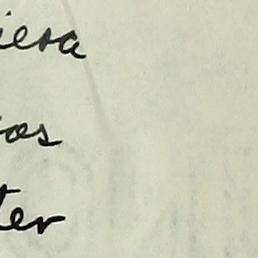 iera
os
ter